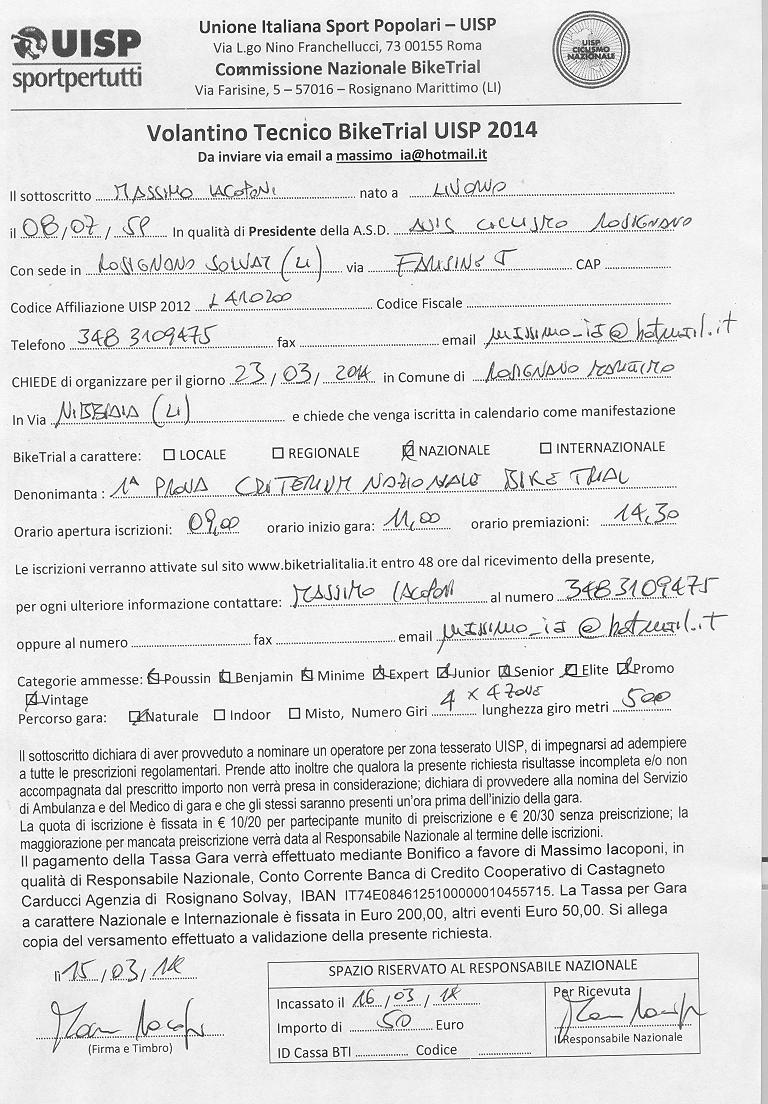 UISP
sportpertutti
Unione Italiana Sport Popolari – UISP
Via L.go Nino Franchellucci, 73 00155 Roma
Commissione Nazionale BikeTrial
Via Farisine, 5 – 57016 – Rosignano Marittimo (LI)
UISP CICLISMO NAZIONALE
Volantino Tecnico BikeTrial UISP 2014
Da inviare via email a massimo_ia@hotmail.it
Il sottoscritto MASSIMO IACOPONI nato a LIVORNO
il 08/07/59 In qualità di Presidente della A.S.D. AVIS CICLISMO ROSIGNANO
Con sede in ROSIGNANO SOLVAY (LI) via FARISINE 5 CAP
Codice Affiliazione UISP 2012 L410200 Codice Fiscale
Telefono 348 3109475 fax email massimo_ia@hotmail.it
CHIEDE di organizzare per il giorno 23/03/2014 in Comune di ROSIGNANO MARITTIMO
In Via NIBBIAIA (LI) e chiede che venga iscritta in calendario come manifestazione
BikeTrial a carattere: LOCALE REGIONALE NAZIONALE INTERNAZIONALE
Denonimanta : 1ª PROVA CRITERIUM NAZIONALE BIKE TRIAL
Orario apertura iscrizioni: 09,00 orario inizio gara: 11,00 orario premiazioni: 14,30
Le iscrizioni verranno attivate sul sito www.biketrialitalia.it entro 48 ore dal ricevimento della presente,
per ogni ulteriore informazione contattare: MASSIMO IACOPONI al numero 3483109475
oppure al numero fax email massimo_ia@hotmail.it
Categorie ammesse: Poussin Benjamin Minime Expert Junior Senior Elite Promo
Vintage
Percorso gara: Naturale Indoor Misto, Numero Giri 4 x 4 ZONE lunghezza giro metri 500
Il sottoscritto dichiara di aver provveduto a nominare un operatore per zona tesserato UISP, di impegnarsi ad adempiere
a tutte le prescrizioni regolamentari. Prende atto inoltre che qualora la presente richiesta risultasse incompleta e/o non
accompagnata dal prescritto importo non verrà presa in considerazione; dichiara di provvedere alla nomina del Servizio
di Ambulanza e del Medico di gara e che gli stessi saranno presenti un'ora prima dell'inizio della gara.
La quota di iscrizione è fissata in € 10/20 per partecipante munito di preiscrizione e € 20/30 senza preiscrizione; la
maggiorazione per mancata preiscrizione verrà data al Responsabile Nazionale al termine delle iscrizioni.
Il pagamento della Tassa Gara verrà effettuato mediante Bonifico a favore di Massimo Iacoponi, in
qualità di Responsabile Nazionale, Conto Corrente Banca di Credito Cooperativo di Castagneto
Carducci Agenzia di Rosignano Solvay, IBAN IT74E0846125100000010455715. La Tassa per Gara
a carattere Nazionale e Internazionale è fissata in Euro 200,00, altri eventi Euro 50,00. Si allega
copia del versamento effettuato a validazione della presente richiesta.
lì 15/03/14
(Firma e Timbro)
SPAZIO RISERVATO AL RESPONSABILE NAZIONALE
Incassato il 16/03/14
Importo di 50 Euro
ID Cassa BTI Codice
Per Ricevuta
Il Responsabile Nazionale